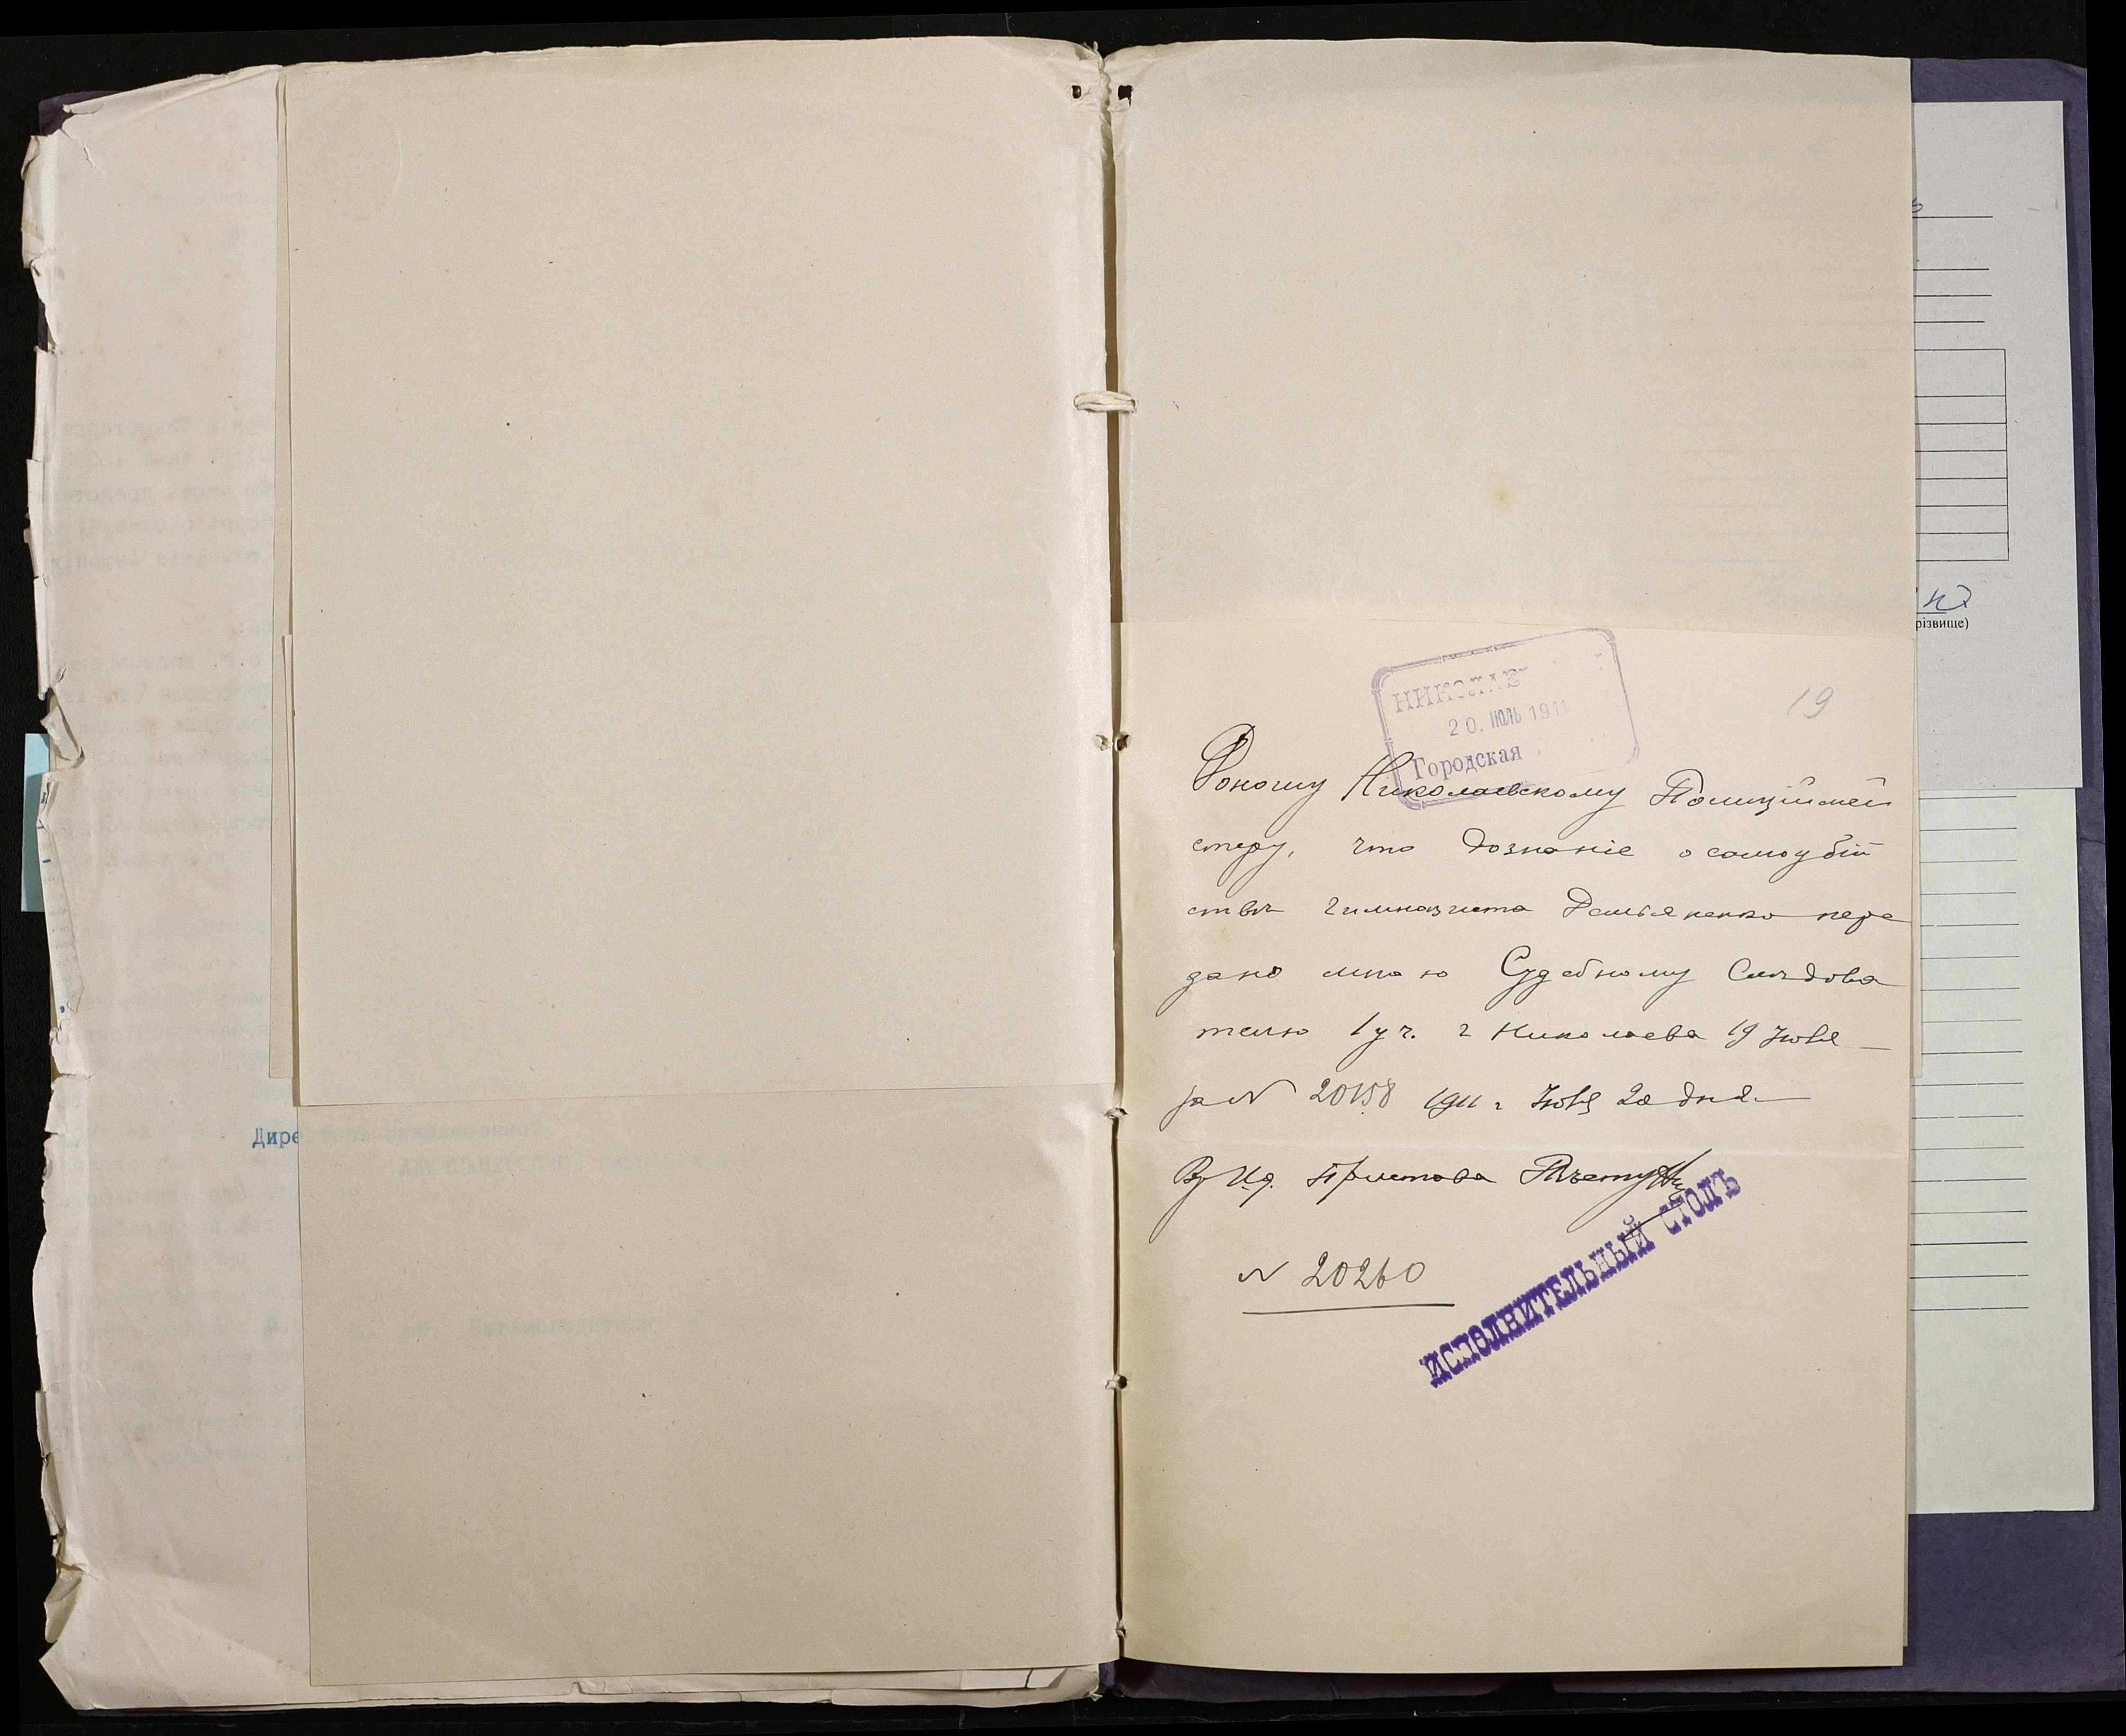 19
НИКОЛАЕВ
20. ІЮЛЬ 1911
Городская
Доношу Николаевскому Полиціймей
стеру, что дознаніе о самоубій
ствѣ гимназиста Демьяненко пере
дано мною Судебному Слѣдова
телю 1 уч. г Николаева 19 Іюля
за N 20158 1911 г Іюля 20 дня.
Вр И.д. Пристава
N 20260
ИСПОЛНИТЕЛЬНЫЙ СТОЛЪ
Дире
різвище)